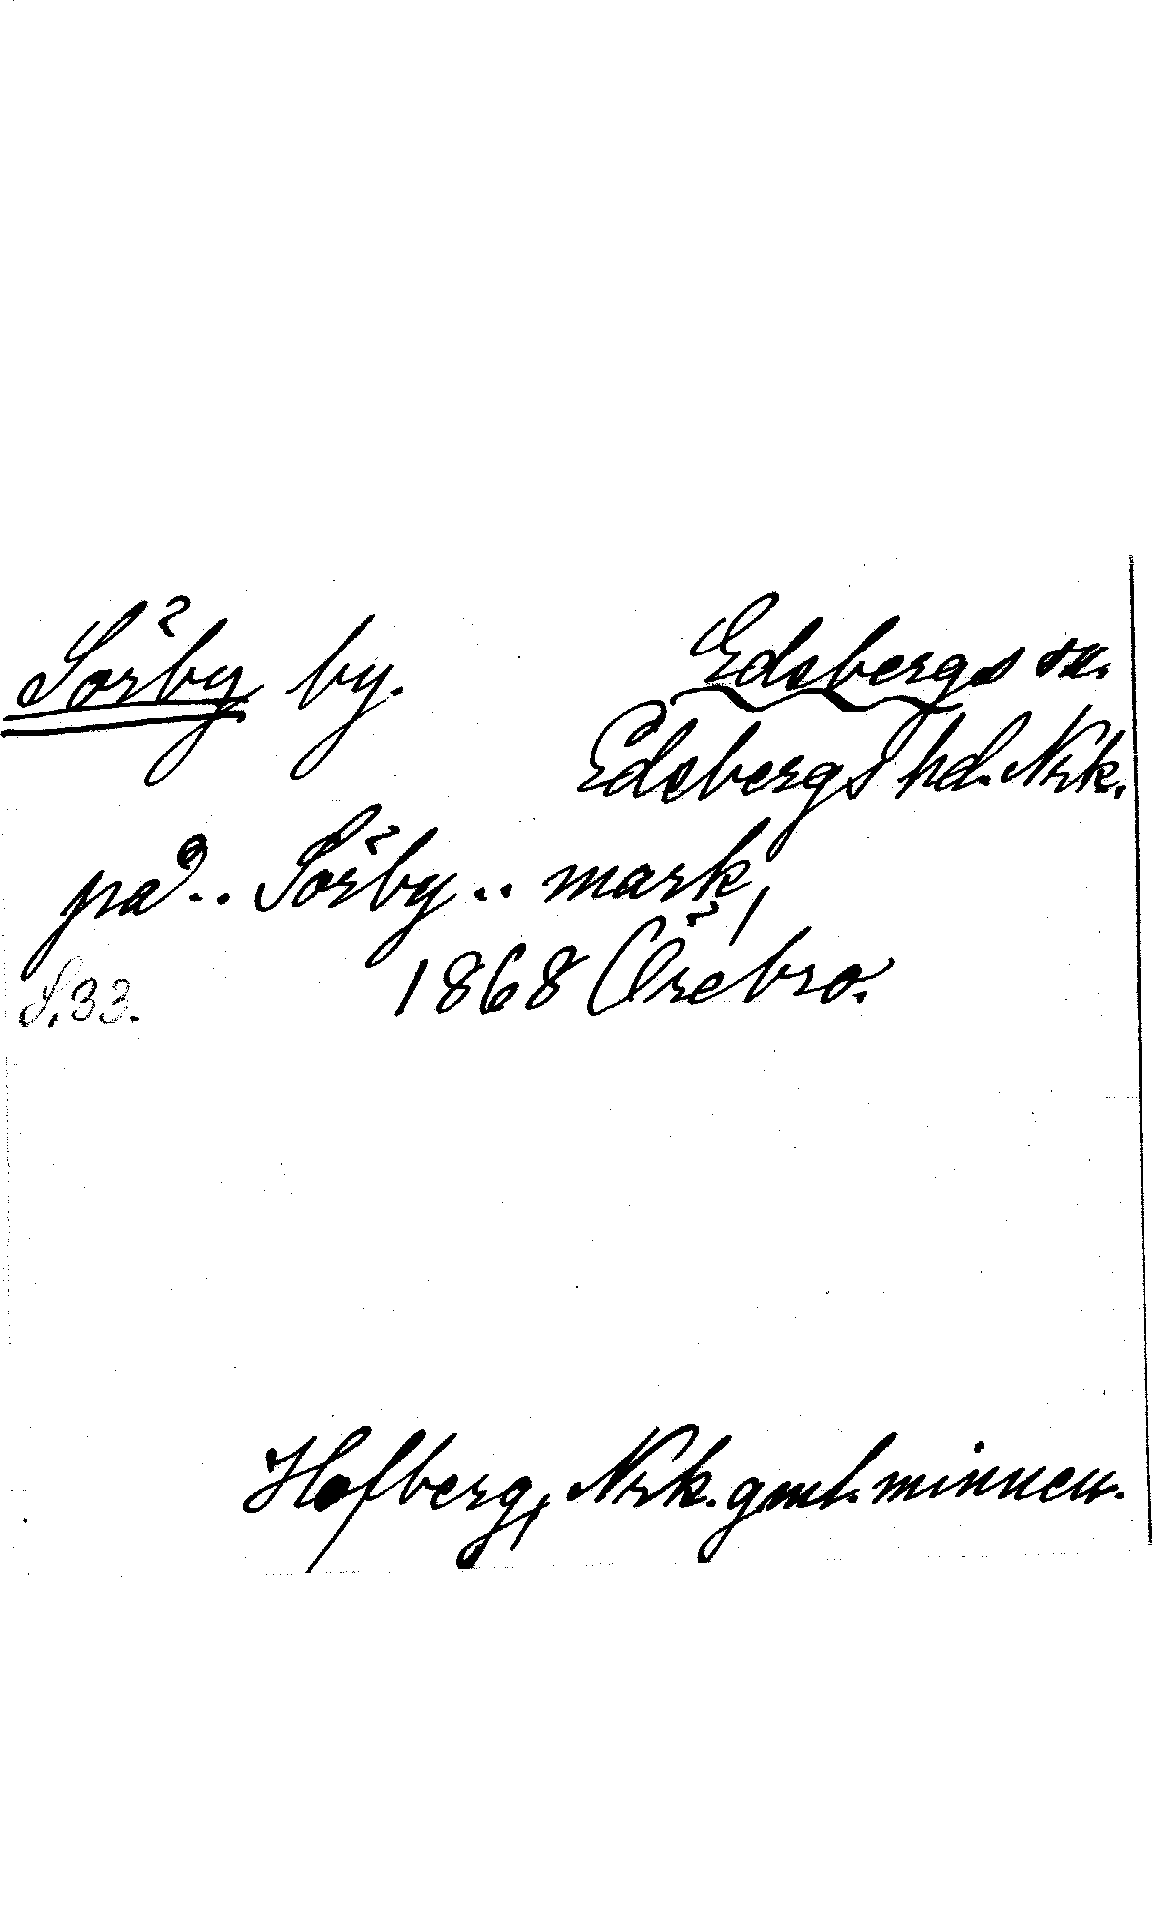 Sörby by. Edsbergs sn.
Edsbergs hd. Nrk.
på.. Sörby.. mark,
S. 33. 1868 Örebro.
Hofberg, Nrk. gml. minnen.